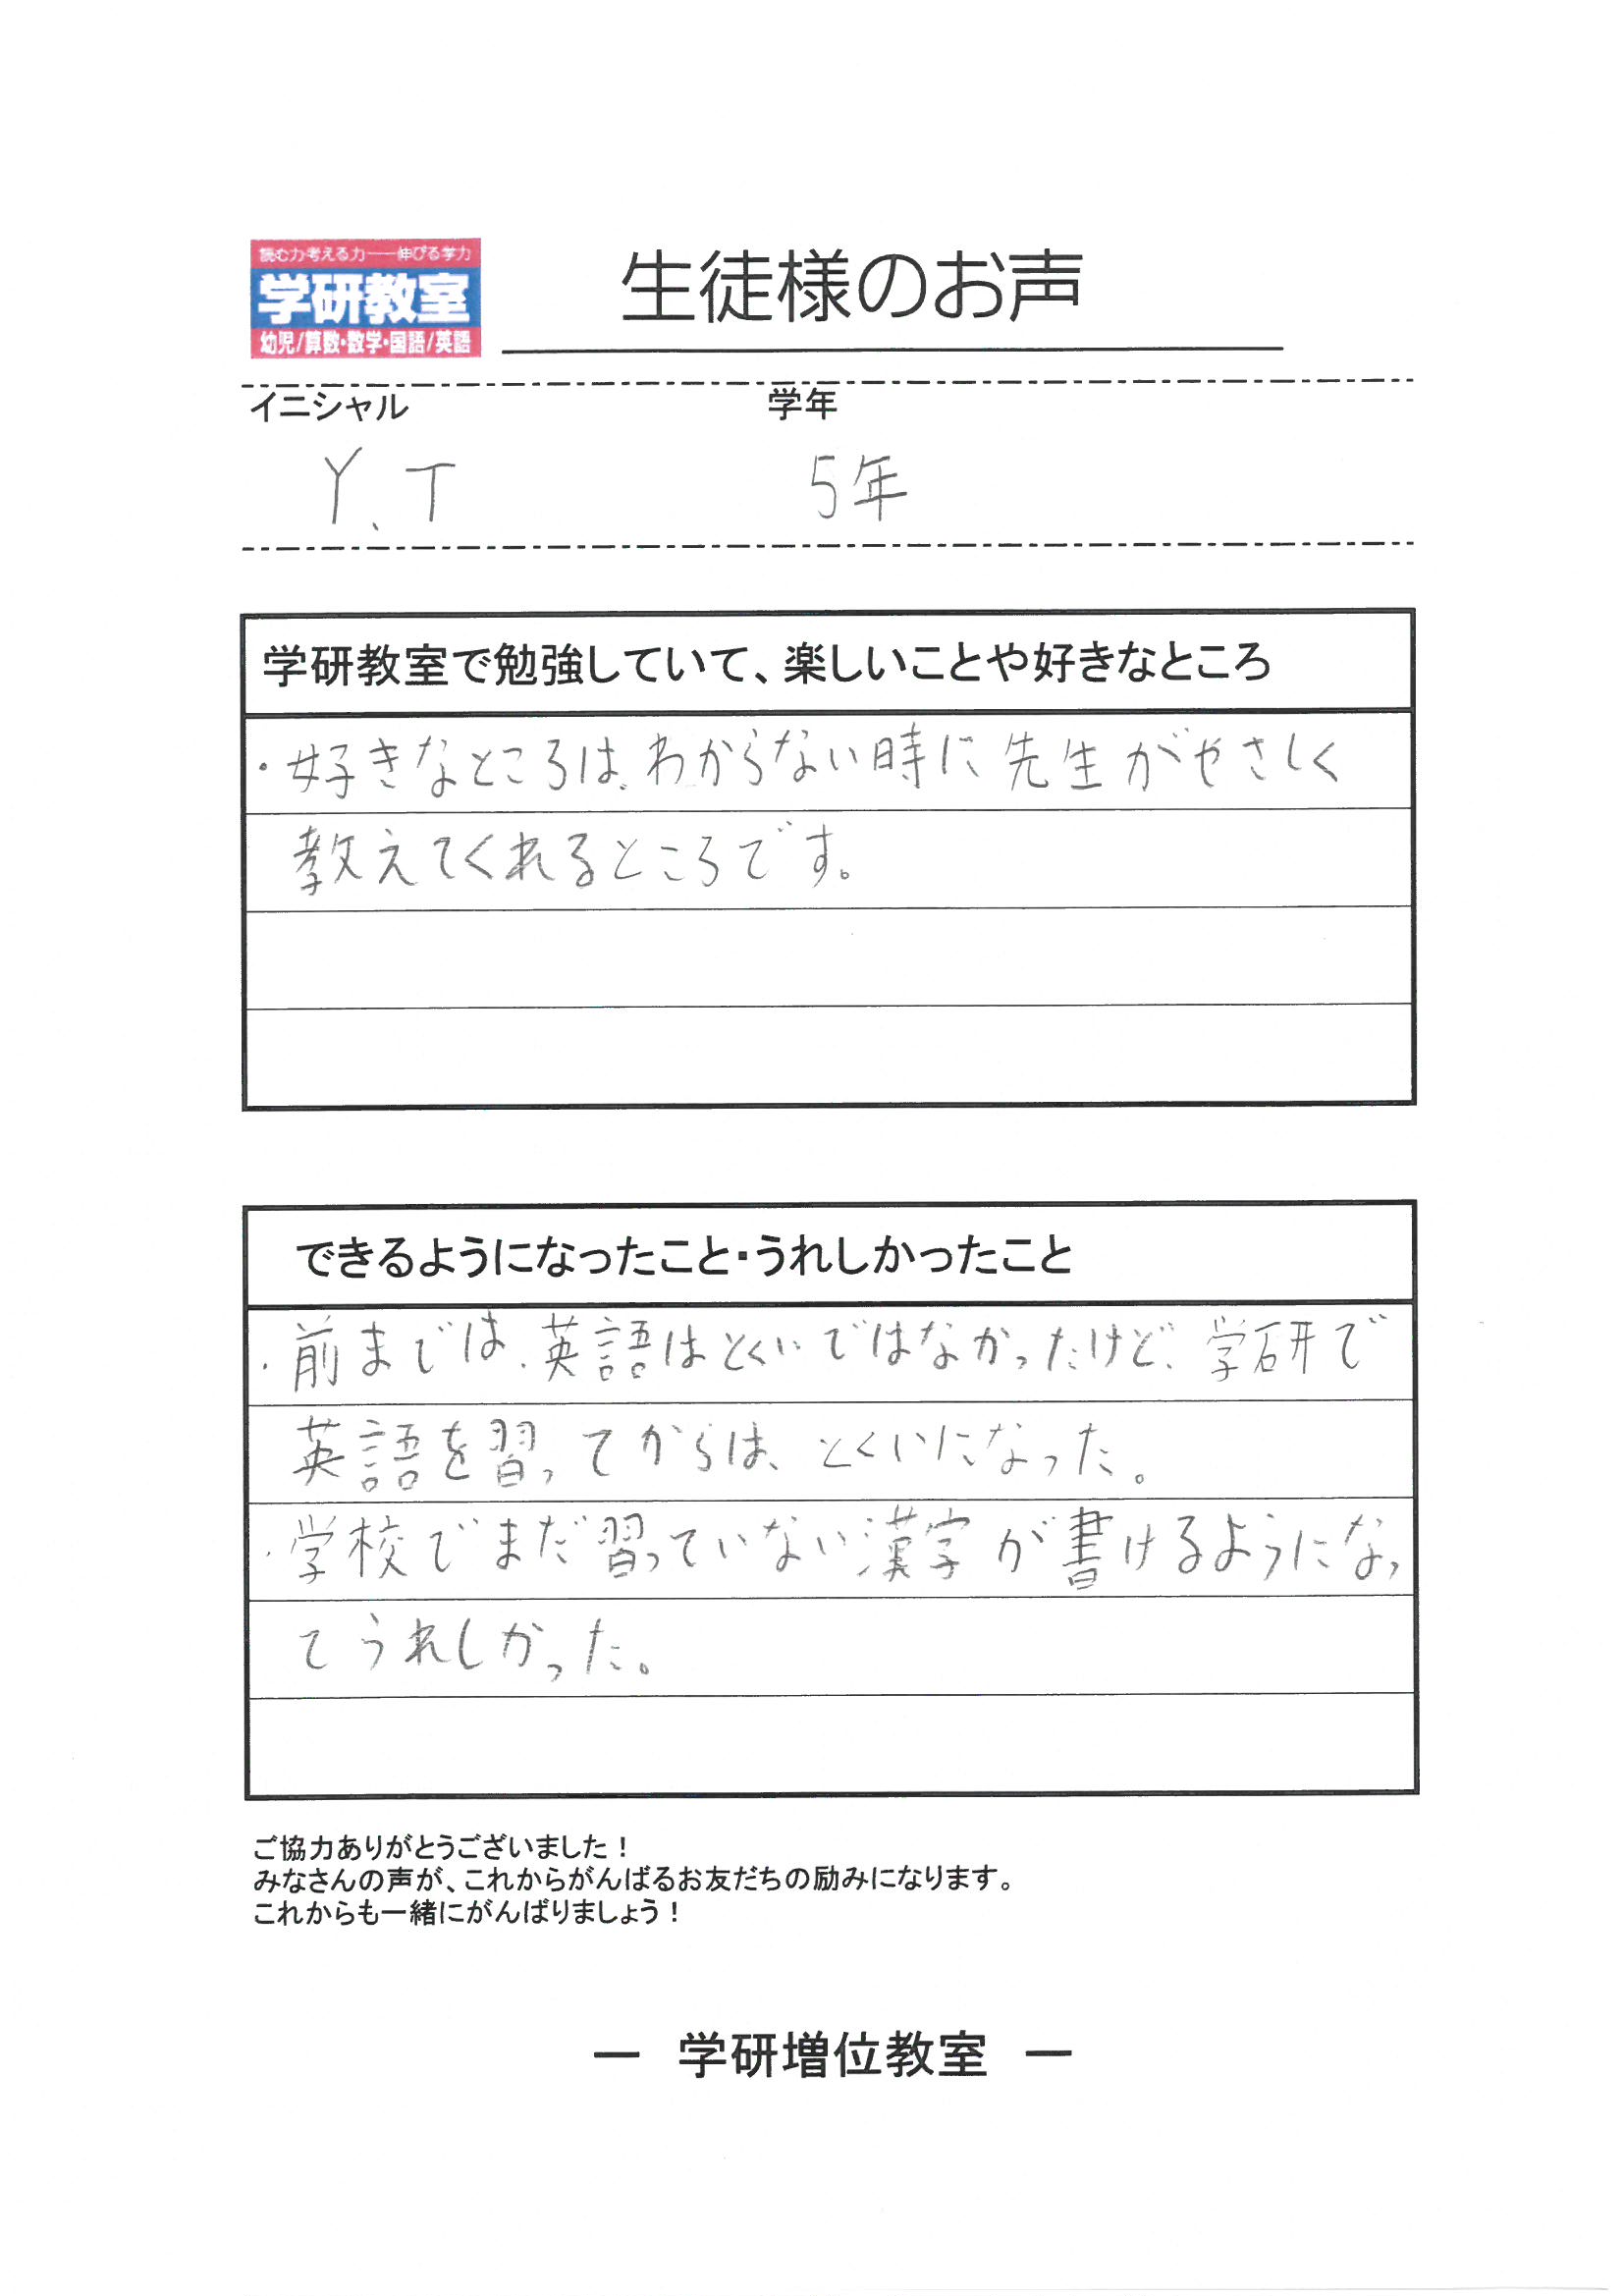 読む力考える力――伸びる学力
学研教室
幼児/算数・数学・国語/英語
生徒様のお声
イニシャル 学年
Y、T 5年
学研教室で勉強していて、楽しいことや好きなところ
・好きなところは、わからない時に先生がやさしく
教えてくれるところです。
できるようになったこと・うれしかったこと
・前までは、英語はとくいではなかったけど、学研で
英語を習ってからは、とくいになった。
・学校でまだ習っていない漢字が書けるようになっ
てうれしかった。
ご協力ありがとうございました！
みなさんの声が、これからがんばるお友だちの励みになります。
これからも一緒にがんばりましょう！
― 学研増位教室 ―